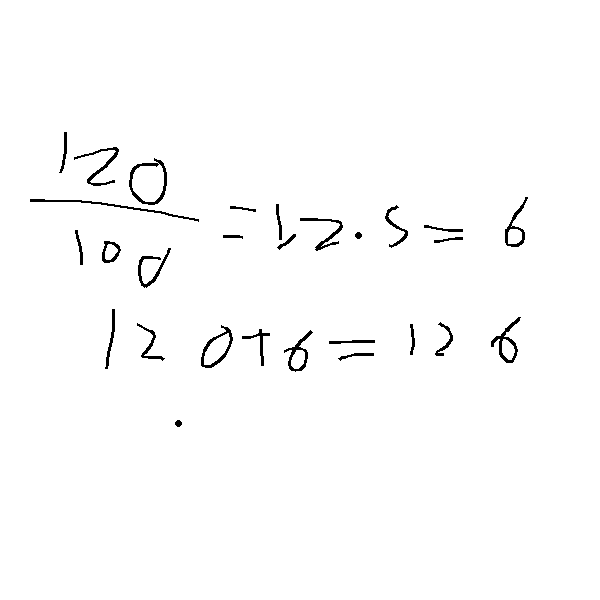 120/100 = 12.5 = 6
120+6 = 126